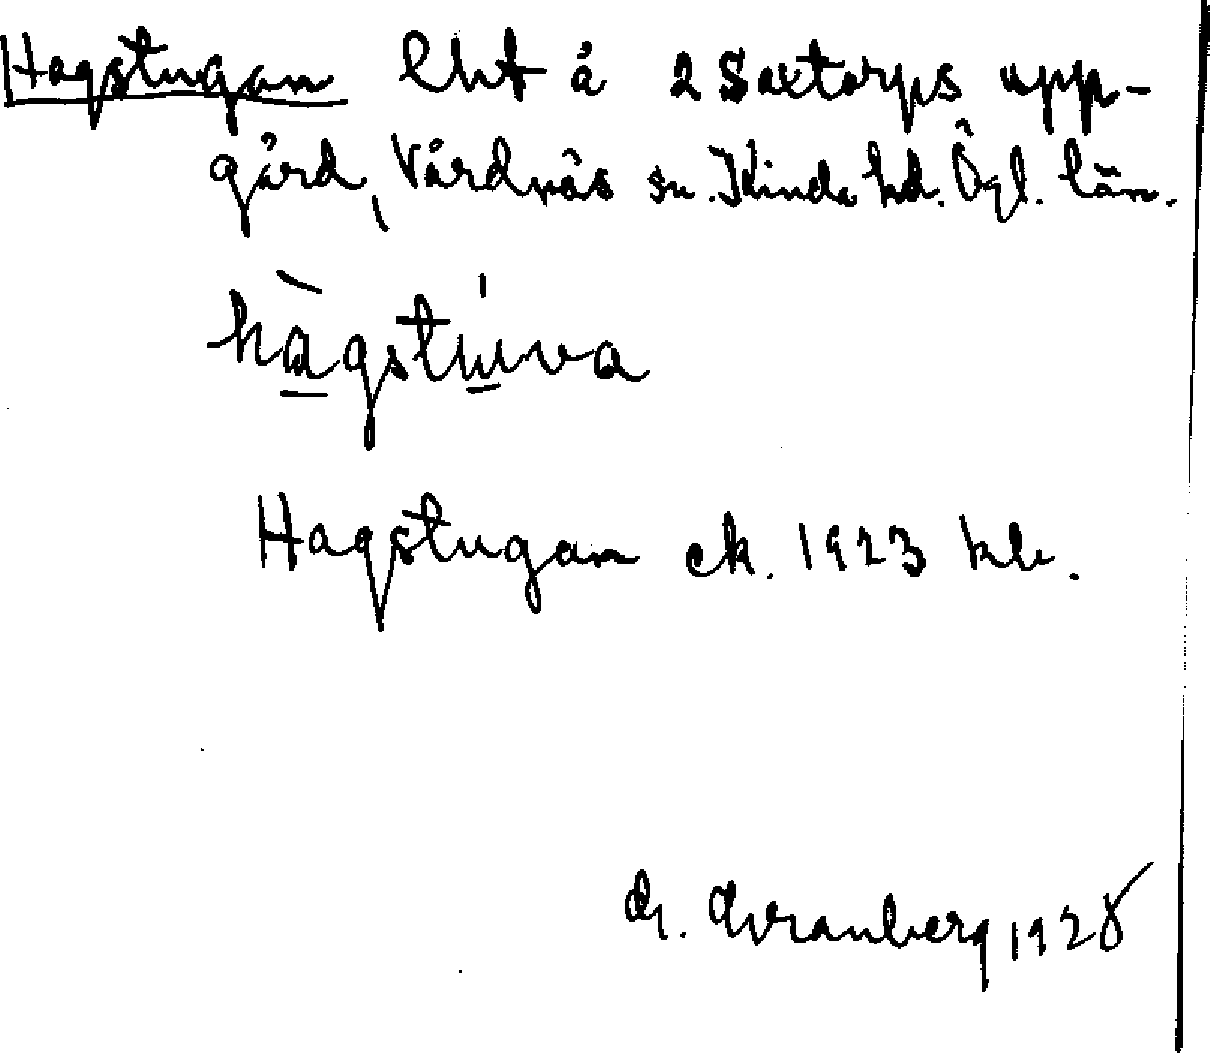 Hagstugan lht å 2 Saxtorps upp-
gård, Vårdnäs sn. Kinda hd. Ögl. län.
hàgstúva
Hagstugan ek. 1923 kbl.
A. Granberg 1928